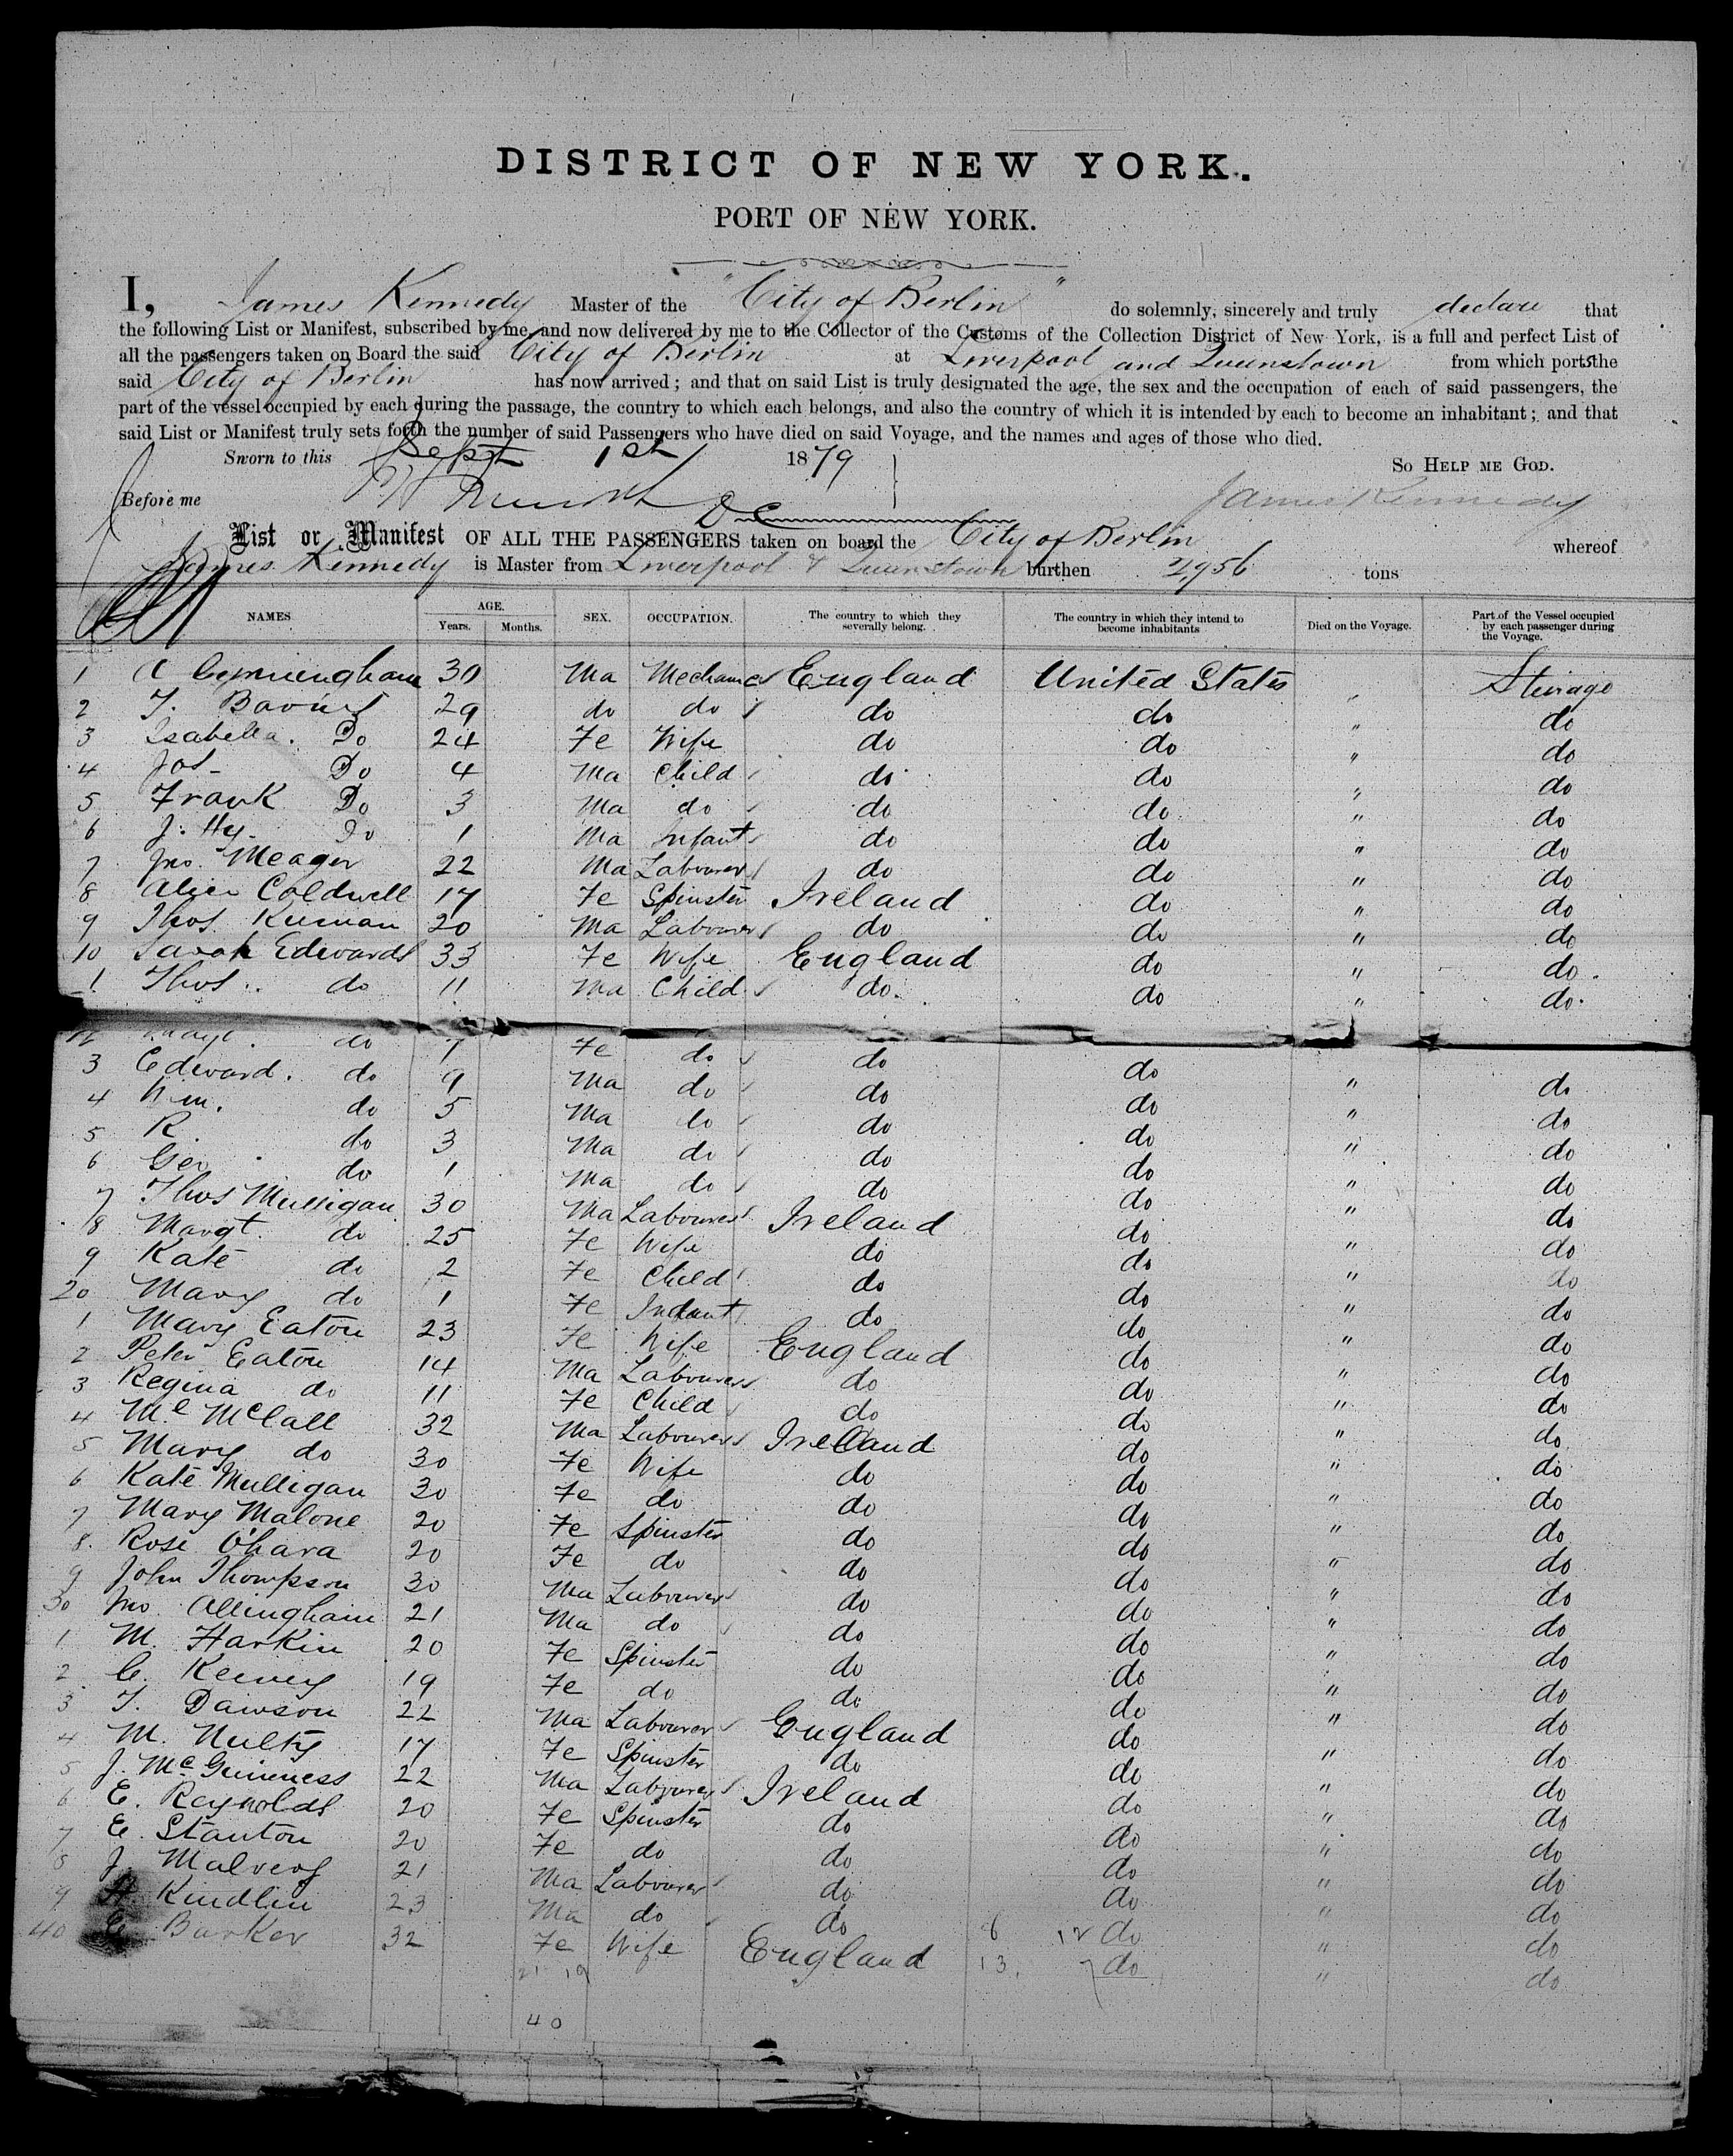 DISTRICT OF NEW YORK.
PORT OF NEW YORK.
I, James Kennedy Master of the "City of Berlin" do solemnly, sincerely and truly declare that
the following List or Manifest, subscribed by me, and now delivered by me to the Collector of the Customs of the Collection District of New York, is a full and perfect List of
all the passengers taken on Board the said City of Berlin at Liverpool and Queenstown from which ports the
said City of Berlin has now arrived; and that on said List is truly designated the age, the sex and the occupation of each of said passengers, the
part of the vessel occupied by each during the passage, the country to which each belongs, and also the country of which it is intended by each to become an inhabitant; and that
said List or Manifest truly sets forth the number of said Passengers who have died on said Voyage, and the names and ages of those who died.
Sworn to this Sept 1st 1879 So Help me God.
Before me James Kennedy
List or Manifest OF ALL THE PASSENGERS taken on board the City of Berlin whereof
James Kennedy is Master from Liverpool & Queenstown burthen 2956 tons
NAMES AGE. Years. Months. SEX. OCCUPATION. The country to which they severally belong. The country in which they intend to become inhabitants Died on the Voyage. Part of the Vessel occupied by each passenger during the Voyage.
1 30 Ma Mechanic England United States " Steirage
2 29 do do do do " do
3 Isabella. Do 24 Fe Wife do do " do
4 Jos- Do 4 Ma Child do do " do
5 Frank Do 3 Ma do do do " do
6 J. Hy. Do 1 Ma Infant do do " do
7 Jno. Meager 22 Ma Labourer do do " do
8 Alice Coldwell 17 Fe Spinster Ireland do " do
9 Thos. Kiernan 20 Ma Labourer do do " do
10 Sarah Edwards 33 Fe Wife England do " do
1 Thos.. do 11 Ma Child do do " do
do 7 Fe do do do " do
3 Edward. do 9 Ma do do do " do
4 Wm. do 5 Ma do do do " do
5 R. do 3 Ma do do do " do
6 Geo. do 1 Ma do do do " do
7 Thos Mulligan 30 Ma Labourer Ireland do " do
18 Margt. do 25 Fe Wife do do " do
9 Kate do 2 Fe Child do do " do
20 Mary do 1 Fe Infant do do " do
1 Mary Eaton 23 Fe Wife England do " do
2 Peter Eaton 14 Ma Labourer do do " do
3 Regina do 11 Fe Child do do " do
4 McCall 32 Ma Labourer Ireland do " do
5 Mary do 30 Fe Wife do do " do
6 Kate Mulligan 30 Fe do do do " do
7 Mary Malone 20 Fe Spinster do do " do
8. Rose O'hara 20 Fe do do do " do
9 John Thompson 30 Ma Labourer do do " do
30 Jno Allingham 21 Ma do do do " do
1 M. Harkin 20 Fe Spinster do do " do
2 C. 19 Fe do do do " do
3 T. Dawson 22 Ma Labourer England do " do
4 M. Nulty 17 Fe Spinster do do " do
5 J. McGuinness 22 Ma Labourer Ireland do " do
6 E. Reynolds 20 Fe Spinster do do " do
7 E. Stanton 20 Fe do do do " do
8 J. 21 Ma Labourer do do " do
9 Kindlin 23 Ma do do 8 12 do " do
40 Barker 32 Fe Wife England 13. 7 do " do
21 19
40